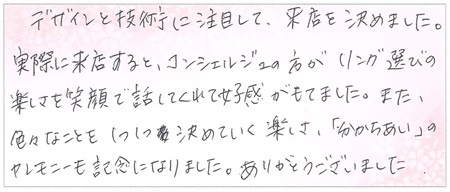 デザインと技術に注目して、来店を決めました。
実際に来店すると、コンシェルジュの方がリング選びの
楽しさを笑顔で話してくれて好感がもてました。また、
色々なことを1つ1つ決めていく楽しさ、「分かちあい」の
セレモニーも記念になりました。ありがとうございました.